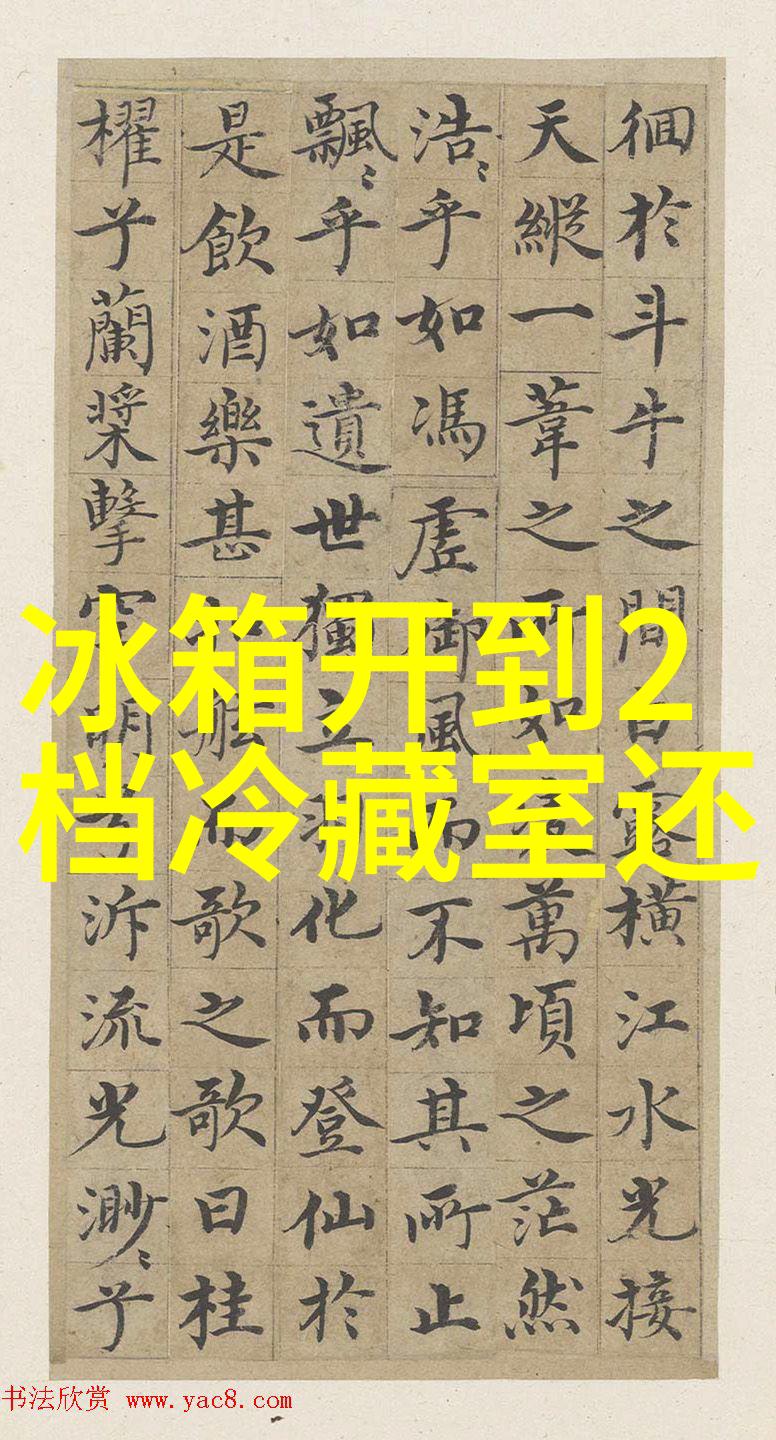 徊於斗牛之間白露橫江水光接
天縱一葦之所如凌萬頃之茫然
浩〻乎如馮虛御風而不知其所止
飄〻乎如遺世獨立羽化而登仙於
是飲酒樂甚扣舷而歌之歌曰桂
櫂兮蘭槳擊空明兮泝流光渺〻兮
冰箱开到2
档冷藏室还
书法欣赏 www.yac8.com